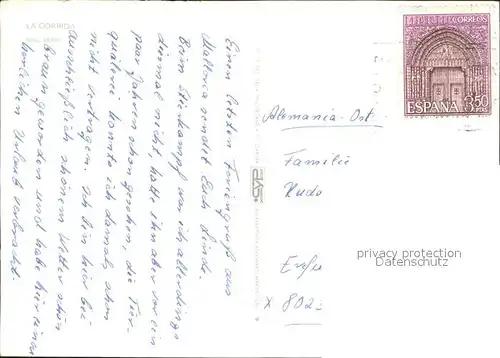 LA CORRIDA
Einen letzten Feriengruß aus
Mallorca sendet Euch Linde.
Beim Stierkampf war ich allerdings
diesmal nicht, hatte ihn aber vor ein
paar Jahren schon gesehen, die Tier-
quälerei konnte ich damals schon
nicht vertragen. Ich bin hier bei
ausschließlich schönem Wetter schon
braun geworden und habe hier einen
herrlichen Urlaub verbracht.
CORREOS
ESPAÑA 3,50
PTA
Alemania-Ost
Familie
privacy protection
Datenschutz
X 802